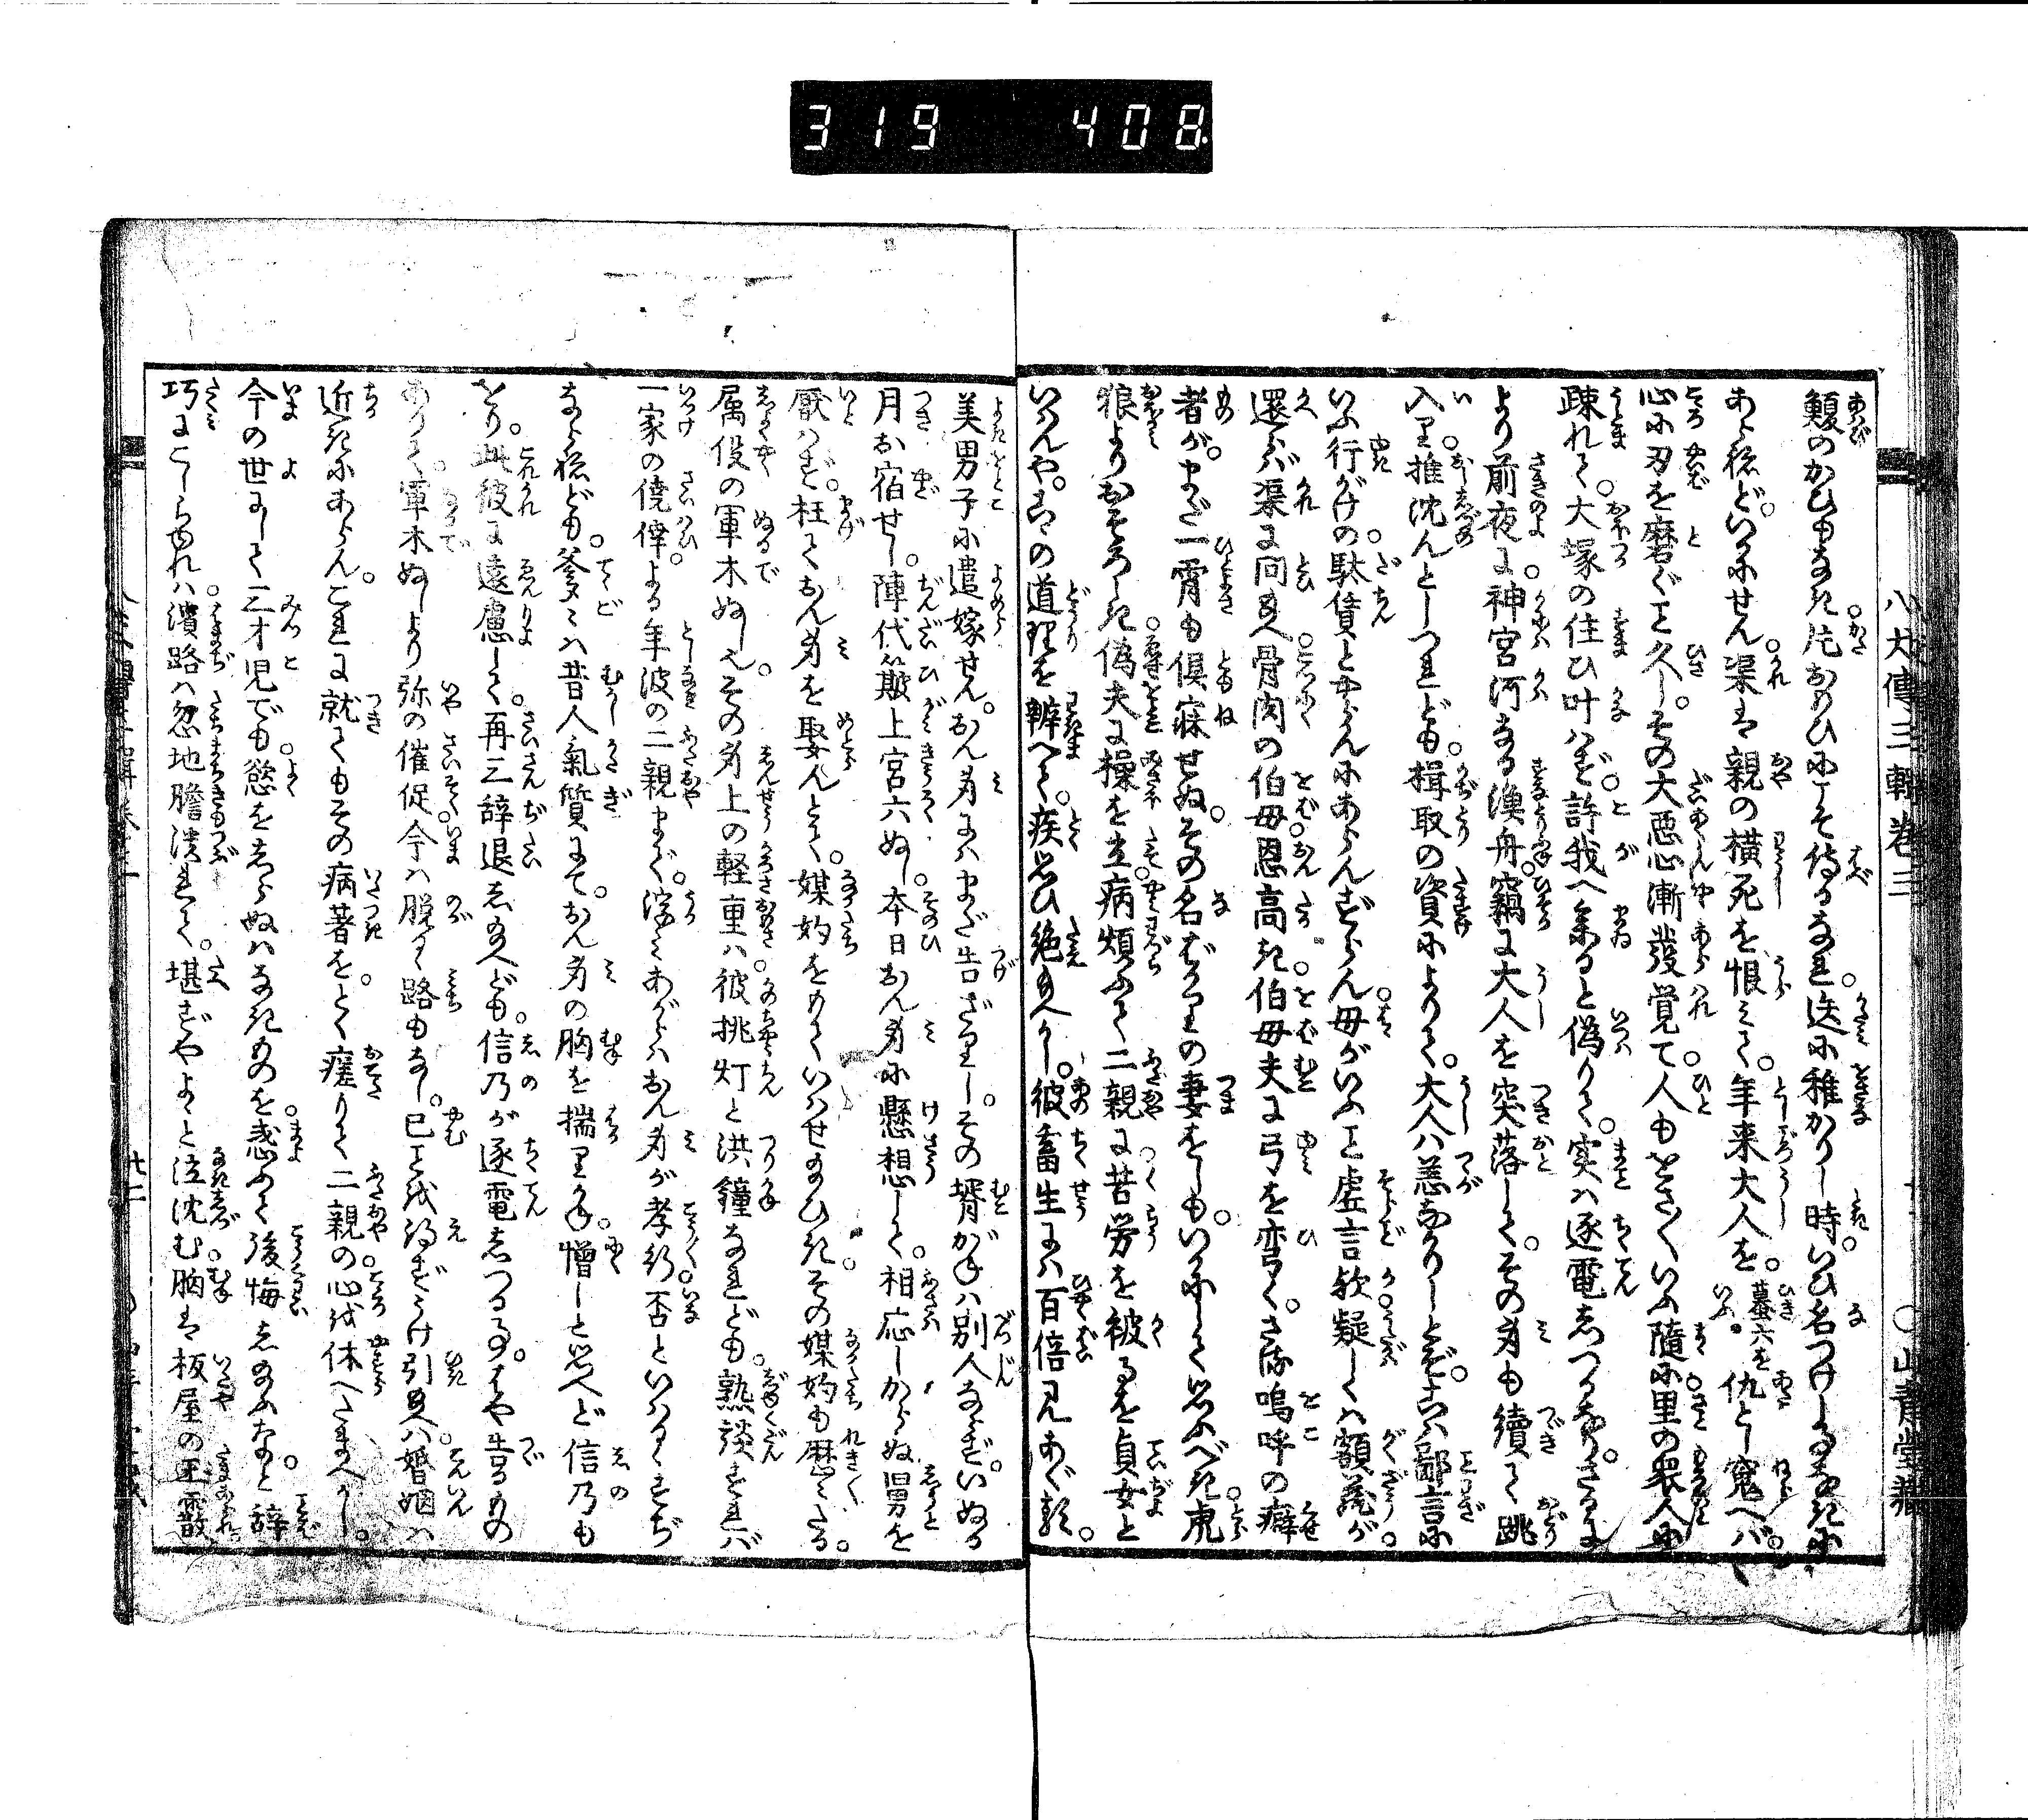 319 408
八犬傳三輯卷三
○山青堂藏
鰒のかひもなき片おもひにこそ侍るなれ。迭に稚かりし時。いひ名つけしるなきに
あらねど。いかにせん。渠は親の横死を恨みて。年来大人を。蟇六をいふ。仇とし窺へバ。
心に刃を磨ぐこと久し。その大悪心漸発覚て。人もをさ〳〵いふ随に里の衆人に
疎れて。大塚の住ひ叶はず。許我へ参ると偽りて。実ハ逐電しつるなり。さるに
より前夜に。神宮河なる漁舟。竊に大人を突落して。その身も續て跳
入り。推沈んとしつれども。楫取の資によりて。大人ハ恙なかりしとぞ。こハ鄙言に
いふ行がけの駄賃とやらんにあらんずらん。母がいふこと虚言歟。疑しくハ額藏が
還らバ渠に問給へ。骨肉の伯母。恩高き伯母夫に弓を彎く。さる嗚呼の癖
者が。まだ一霄も倶寐せぬ。その名ばかりの妻をしも。いかにして思ふべき。虎
狼よりおそろしき偽夫に操を立。病煩ふて二親に苦労を被るを貞女と
いはんや。この道理を辨へて。疾思ひ絶給へかし。彼畜生にハ百倍見あぐる。
美男子に遣嫁せん。おん身にハまだ告ざりし。その壻がねハ別人ならず。いぬる
月お宿せし。陣代簸上宮六ぬし。本日おん身に懸想して。相応しからぬ舅を
厭はず。枉ておん身を娶んとて。媒妁をもていはせ給ひき。その媒妁も歴々たる。
属役の軍木ぬし也。その身上の軽重ハ。彼挑灯と洪鐘なれども。熟談すれバ
一家の僥倖。よる年波の二親まで。深みにあがるハおん身が孝行。否といはるゝすぢ
ならねども。爹々ハ昔人氣質にて。おん身の胸を揣りかね。憎しと思へど信乃も
をり。此彼に遠慮して。再三辞退し給へども。信乃が逐電しつる事。はや告るもの
ありて。軍木ぬしより弥の催促。今ハ脱るゝ路もなし。已ことを得ずうけ引給へバ。婚姻ハ
近きにあらん。これに就てもその病著を。とく瘥りて二親の。心を休へたまへかし。
今の世にして三才児でも。慾をしらぬハなきものを。惑ふて後悔し給ふなと。辞
巧にこしらゆれハ。濱路ハ忽地膽潰れて。堪ずやよゝと泣沈む。胸は板屋の玉霰